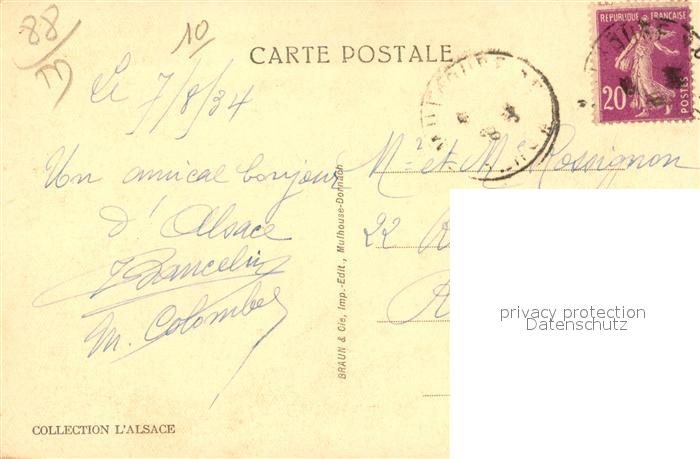 88
10
CARTE POSTALE
REPUBLIQUE FRANÇAISE
20
POSTES
Le 7/8/34
Un amical bonjour
d'Alsace
M. Colombe
Mr et Me Rossignon
22 R
R
BRAUN & Cie, Imp.-Edit., Mulhouse-Dornach
privacy protection
Datenschutz
COLLECTION L'ALSACE